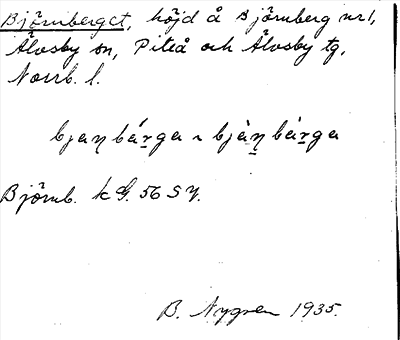 Björnberget, höjd å Björnberg nr 1,
Älvsby sn, Piteå och Älvsby tg,
Norrb. l.
bjaɳbárga ~ bjàɳbárga
Björnb. kG. 56 SV.
B. Nygren 1935.